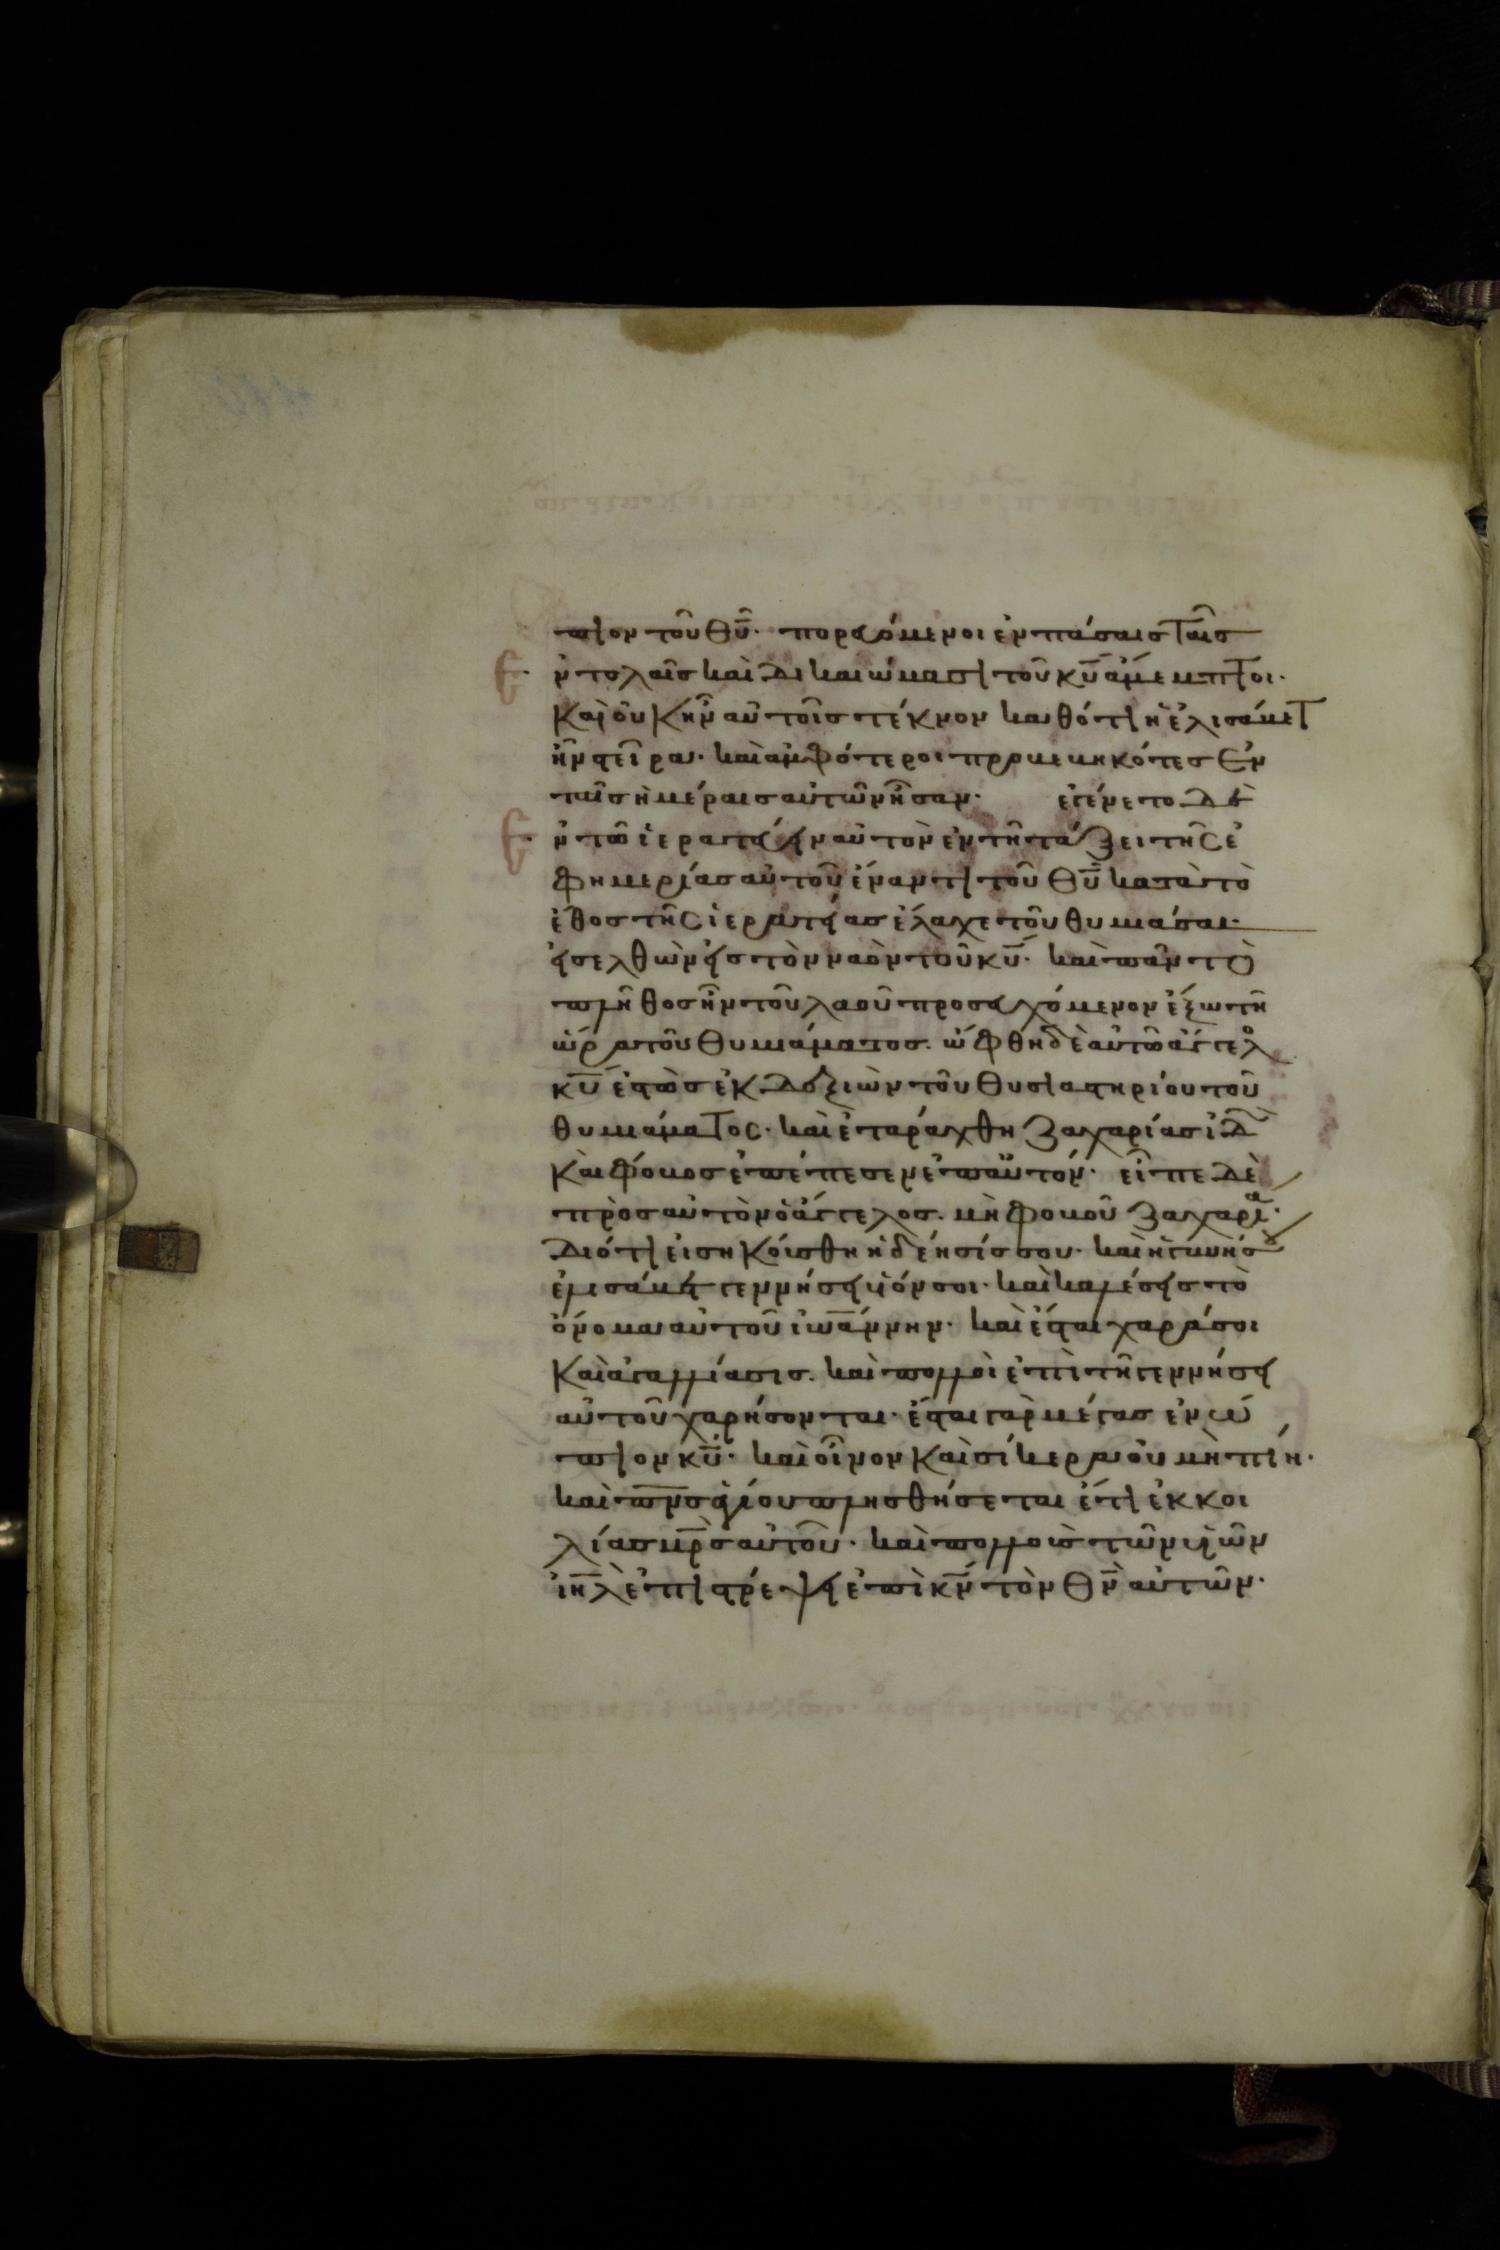 πιον του θυ· πορευόμενοι ἐν πάσαις ταῖς
ἐντολαῖς καὶ δικαιώμασι τοῦ κυ ἄμεμπτοι·
Καὶ οὐκ ἦν αὐτοῖς τέκνον καθότι ἡ ἐλισάβετ
ἦν στεῖρα· καὶ ἀμφότεροι προβεβηκότες ἐν
ταῖς ἡμέραις αὐτῶν ἦσαν· ἐγένετο δὲ
ἐν τῶ ἱερατεύειν αὐτὸν ἐν τῆ τάξει τῆς ἐ
φημερίας αὐτοῦ ἔναντι τοῦ θυ κατὰ τὸ
ἔθος τῆς ἱερατείας ἔλαχε τοῦ θυμιάσαι·
εἰσελθὼν εἰς τὸν ναὸν τοῦ κυ· καὶ πᾶν τὸ
πλῆθος ἦν τοῦ λαοῦ προσευχόμενον ἔξω τῆ
ὥρα τοῦ θυμιάματος· ὤφθη δὲ αὐτῶ ἄγγελο
κυ ἑστὼς ἐκ δεξιῶν τοῦ θυσιαστηρίου τοῦ
θυμιάματος· καὶ ἐταράχθη ζαχαρίας ἰδ
Καὶ φόβος ἐπέπεσεν ἐπ αὐτόν· εἶπε δὲ
πρὸς αὐτὸν ὁ ἄγγελος· μὴ φοβοῦ ζαχαρία·
Διότι εἰσηκούσθη ἡ δέησίς σου· καὶ ἡ γυνή σου
ἐλισάβετ γεννήσει υἱόν σοι· καὶ καλέσεις τὸ
ὄνομα αὐτοῦ ἰωάννην· καὶ ἔσται χαρά σοι
Καὶ ἀγαλλίασις· καὶ πολλοὶ ἐπὶ τῆ γεννήσει
αὐτοῦ χαρήσονται· ἔσται γὰρ μέγας ἐνώ
πιον κυ· καὶ οἶνον καὶ σίκερα οὐ μὴ πίη·
καὶ πνς ἁγίου πλησθήσεται ἔτι ἐκ κοι
λίας μρς αὐτοῦ· καὶ πολλοὺς τῶν υἱῶν
ἰηλ ἐπιστρέψει ἐπὶ κν τὸν θν αὐτῶν·